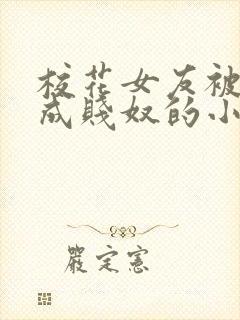 校花女友被
成贱奴的小
严定宪